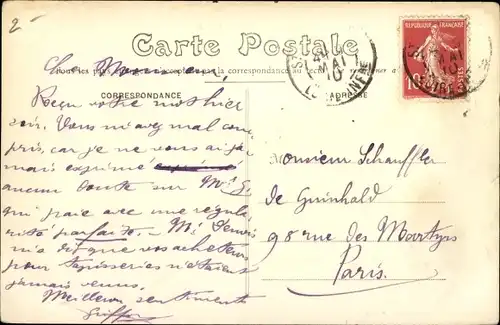 2
Carte Postale
RÉPUBLIQUE FRANÇAISE
10
POSTES
MAI
10
CORRESPONDANCE
ADRESSE
Cher Monsieur,
Reçu votre mot hier
soir. Vous m'avez mal com
pris, car je ne vous ai ja
mais exprimé
aucun doute sur Mr G.
qui paie avec une régula
rité parfaite. Mr
m'a dit que vos acheteurs
pour tapisseries n'étaient
jamais venus.
Meilleurs sentiments
Monsieur Schauffler
de Guinhald
98 rue des Martyrs
Paris.